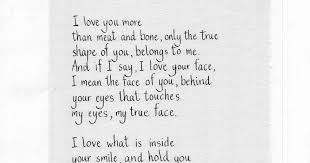 I love you more
than meat and bone, only the true
shape of you, belongs to me.
And if I say, I love your face,
I mean the face of you, behind
your eyes that touches
my eyes, my true face.
I love what is inside
your smile, and hold you